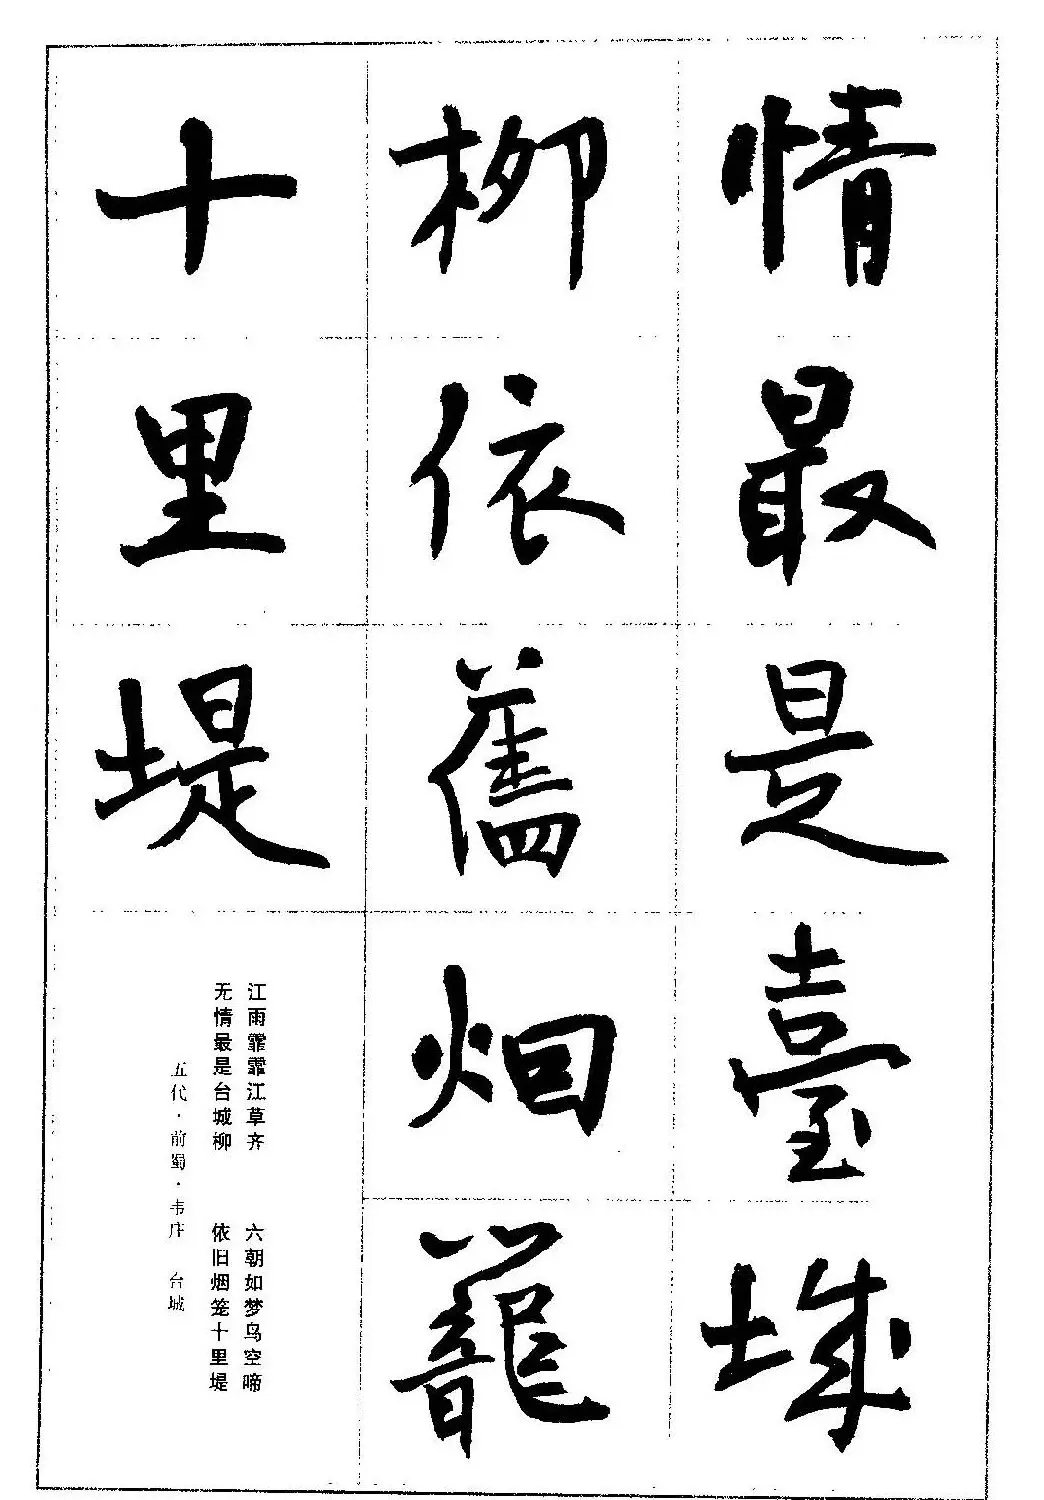 情最是臺城
柳依舊烟籠
十里堤
江雨霏霏江草齐 六朝如梦鸟空啼
无情最是台城柳 依旧烟笼十里堤
五代·前蜀·韦庄 台城